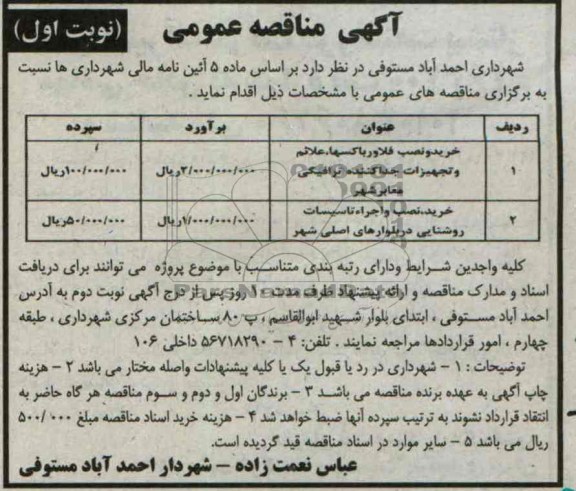 آگهی مناقصه عمومی (نوبت اول)
شهرداری احمد آباد مستوفی در نظر دارد بر اساس ماده ۵ آئین نامه مالی شهرداری ها نسبت
به برگزاری مناقصه های عمومی با مشخصات ذیل اقدام نماید .
ردیف عنوان برآورد سپرده
خریدونصب فلاورباکسها،علائم
۱ وتجهیزات جداکننده ترافیکی ۲/۰۰۰/۰۰۰/۰۰۰ریال ۱۰۰/۰۰۰/۰۰۰ریال
معابرشهر
۲ خرید،نصب واجراءتاسیسات ۱/۰۰۰/۰۰۰/۰۰۰ریال ۵۰/۰۰۰/۰۰۰ریال
روشنایی دربلوارهای اصلی شهر
کلیه واجدین شرایط ودارای رتبه بندی متناسب با موضوع پروژه می توانند برای دریافت
اسناد و مدارک مناقصه و ارائه پیشنهاد ظرف مدت ۱۰ روز پس از درج آگهی نوبت دوم به آدرس
احمد آباد مستوفی ، ابتدای بلوار شهید ابوالقاسم ، پ ۸۰ ساختمان مرکزی شهرداری ، طبقه
چهارم ، امور قراردادها مراجعه نمایند . تلفن: ۴ – ۵۶۷۱۸۲۹۰ داخلی ۱۰۶
توضیحات : ۱ – شهرداری در رد یا قبول یک یا کلیه پیشنهادات واصله مختار می باشد ۲ – هزینه
چاپ آگهی به عهده برنده مناقصه می باشد ۳ – برندگان اول و دوم و سوم مناقصه هر گاه حاضر به
انتقاد قرارداد نشوند به ترتیب سپرده آنها ضبط خواهد شد ۴ – هزینه خرید اسناد مناقصه مبلغ ۵۰۰/۰۰۰
ریال می باشد ۵ – سایر موارد در اسناد مناقصه قید گردیده است.
عباس نعمت زاده – شهردار احمد آباد مستوفی